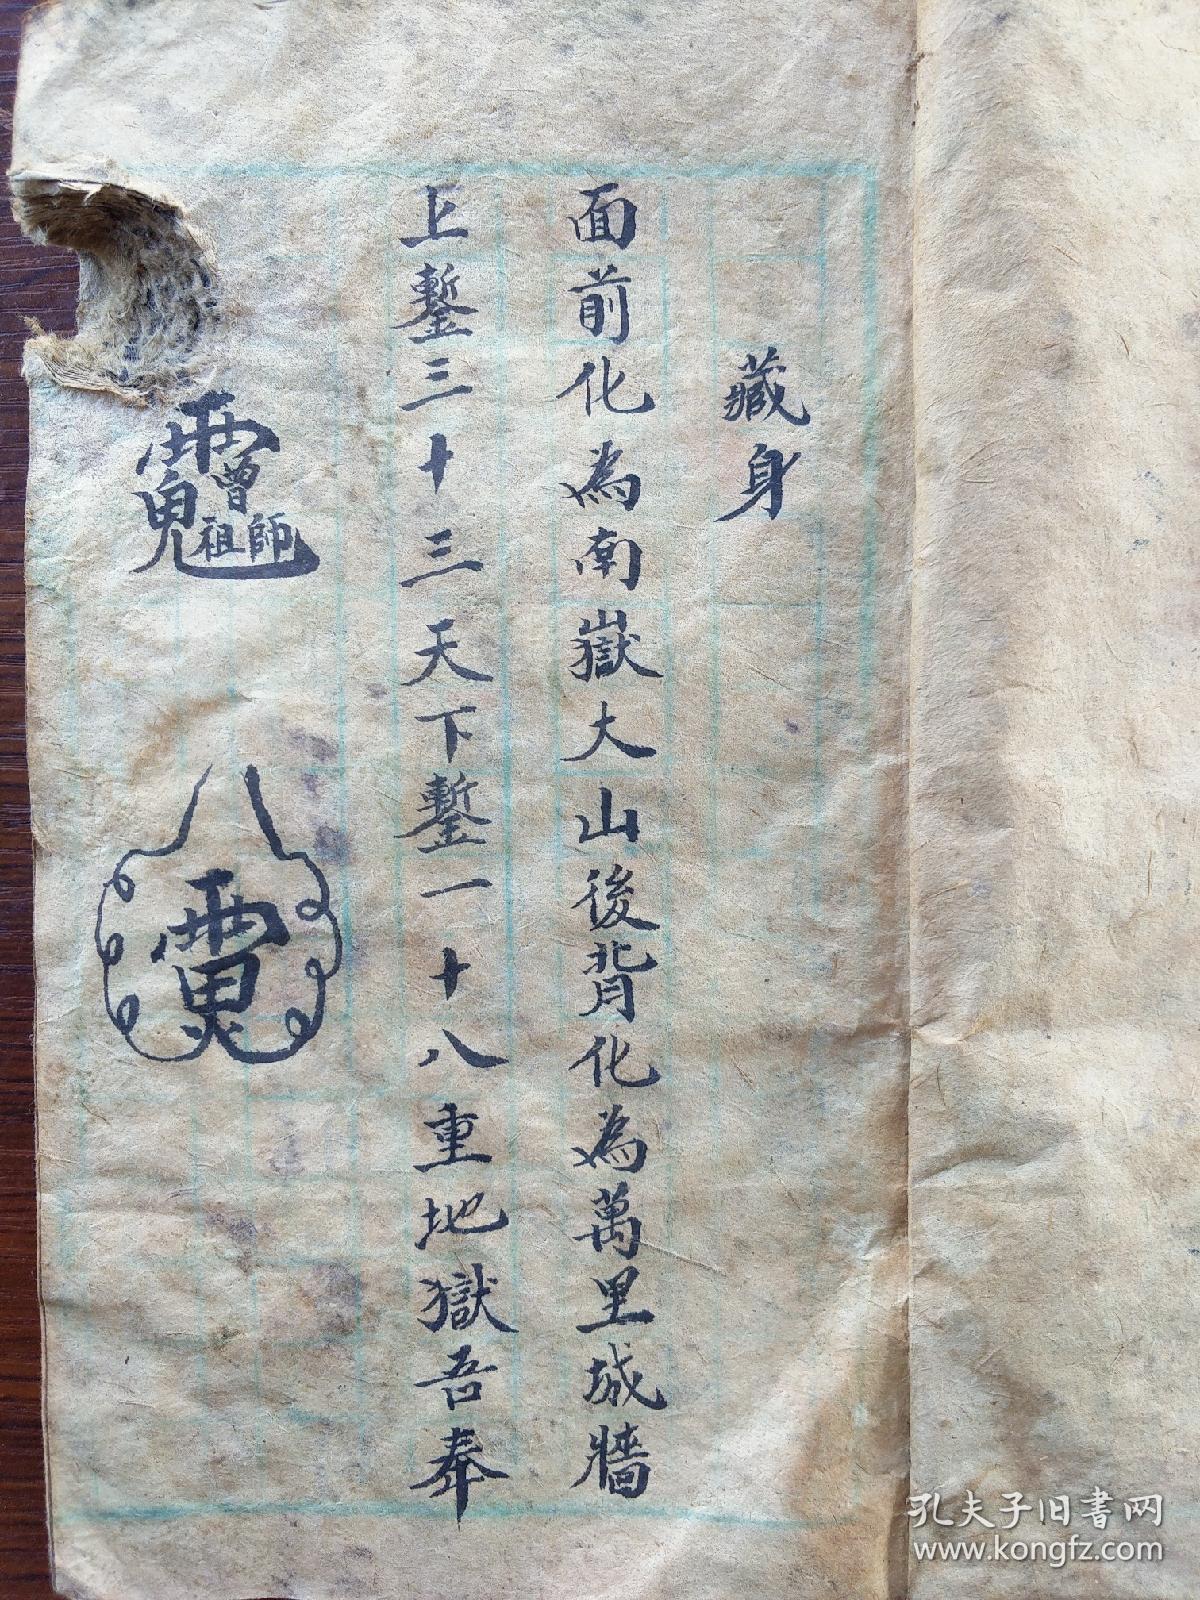 藏身
面前化為南嶽大山後背化為萬里城牆
上鏨三十三天下鏨一十八重地獄吾奉
曾
祖師
孔夫子旧書网
www.kongfz.com